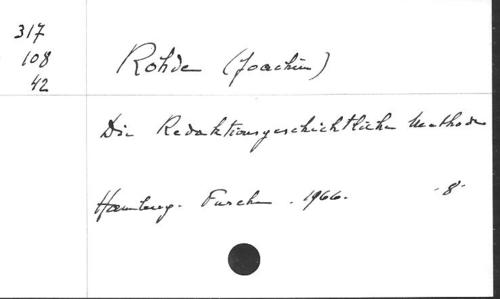 317
108
42
Rohde (Joachim)
Die Redaktionsgeschichtliche Methode
Hamburg. Furche. 1966. 8°